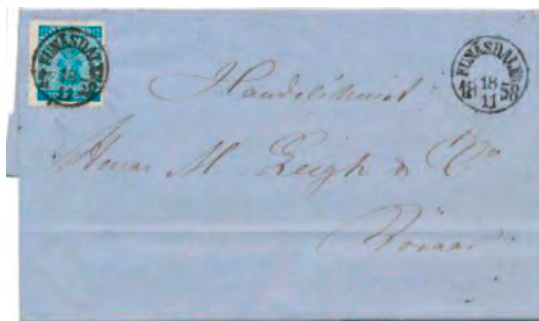 FUNÄSDALEN
18
11
FUNÄSDALEN
18 18 58
11
Handelshuset
Herrar M Leigh & Co
Röraas